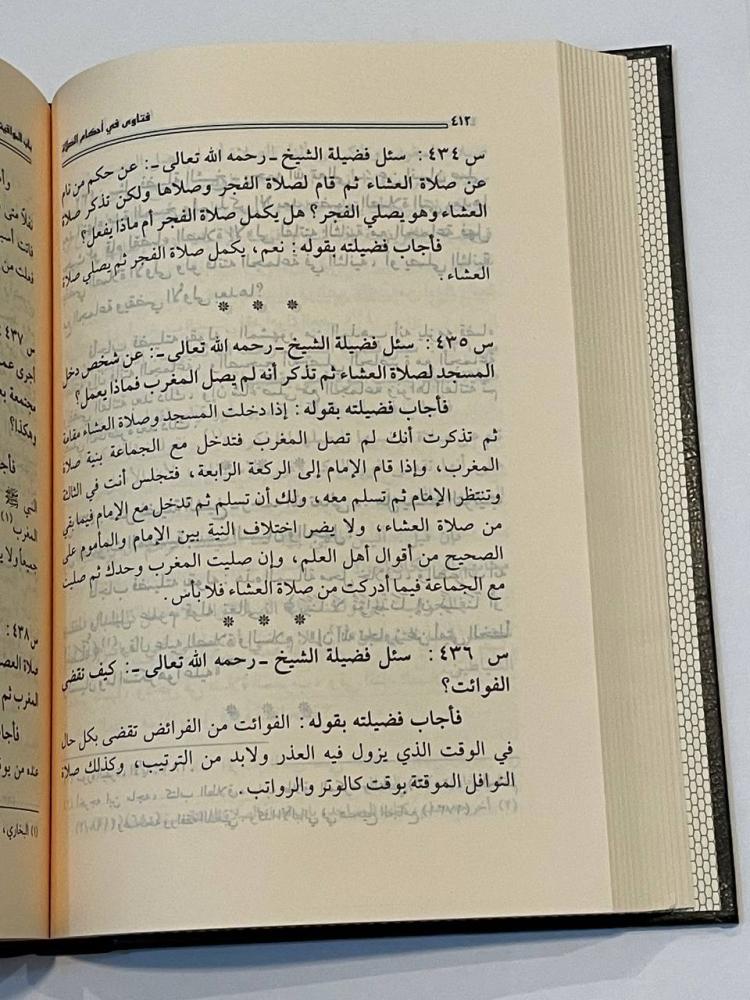 ٤١٢
فتاوى في أحكام الصلاة
س ٤٣٤ : سئل فضيلة الشيخ ـ رحمه الله تعالى ـ: عن حكم من نام
عن صلاة العشاء ثم قام لصلاة الفجر وصلاها ولكن تذكر صلاة
العشاء وهو يصلي الفجر؟ هل يكمل صلاة الفجر أم ماذا يفعل؟
فأجاب فضيلته بقوله: نعم، يكمل صلاة الفجر ثم يصلي صلاة
العشاء.
* * *
س ٤٣٥ : سئل فضيلة الشيخ ـ رحمه الله تعالى ـ: عن شخص دخل
المسجد لصلاة العشاء ثم تذكر أنه لم يصل المغرب فماذا يعمل؟
فأجاب فضيلته بقوله: إذا دخلت المسجد وصلاة العشاء مقامة
ثم تذكرت أنك لم تصل المغرب فتدخل مع الجماعة بنية صلاة
المغرب، وإذا قام الإمام إلى الركعة الرابعة، فتجلس أنت في الثالثة
وتنتظر الإمام ثم تسلم معه، ولك أن تسلم ثم تدخل مع الإمام فيما بقي
من صلاة العشاء، ولا يضر اختلاف النية بين الإمام والمأموم على
الصحيح من أقوال أهل العلم، وإن صليت المغرب وحدك ثم صليت
مع الجماعة فيما أدركت من صلاة العشاء فلا بأس.
* * *
س ٤٣٦ : سئل فضيلة الشيخ ـ رحمه الله تعالى ـ: كيف نقضي
الفوائت؟
فأجاب فضيلته بقوله: الفوائت من الفرائض تقضى بكل حال
في الوقت الذي يزول فيه العذر ولابد من الترتيب، وكذلك صلاة
النوافل الموقتة بوقت كالوتر والرواتب.
س ٤٣٧
أجرى عم
وهكذا؟
النبي ﷺ
المغرب (١)
س ٤٣٨ :
المغرب ثم
(١) البخاري،